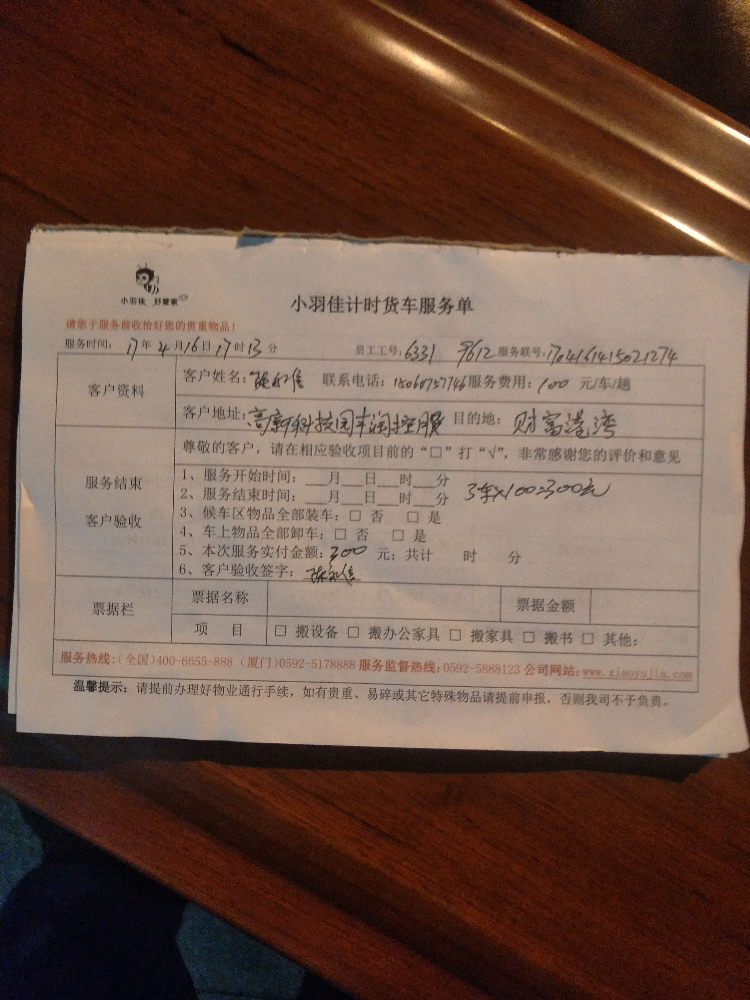 小羽佳 好管家
小羽佳计时货车服务单
请您于服务前收恰好您的贵重物品!
服务时间: 17年4月16日17时13分 员工工号: 6331 9612 服务联号: 1704161415021274
客户资料
客户姓名: 联系电话: 15060757746 服务费用: 100 元/车/趟
客户地址: 高新科技园丰润控股 目的地: 财富港湾
服务结束
客户验收
尊敬的客户,请在相应验收项目前的“□”打“√”,非常感谢您的评价和意见
1、服务开始时间: __月__日__时__分
2、服务结束时间: __月__日__时__分 3车×100=300元
3、候车区物品全部装车: □ 否 □ 是
4、车上物品全部卸车: □ 否 □ 是
5、本次服务实付金额: 300 元; 共计 时 分
6、客户验收签字:
票据栏
票据名称 票据金额
项 目 □ 搬设备 □ 搬办公家具 □ 搬家具 □ 搬书 □ 其他:
服务热线:(全国)400-6655-888 (厦门)0592-5178888 服务监督热线:0592-5888123 公司网站:www.xiaoyujia.com
温馨提示: 请提前办理好物业通行手续,如有贵重、易碎或其它特殊物品请提前申报,否则我司不予负责。